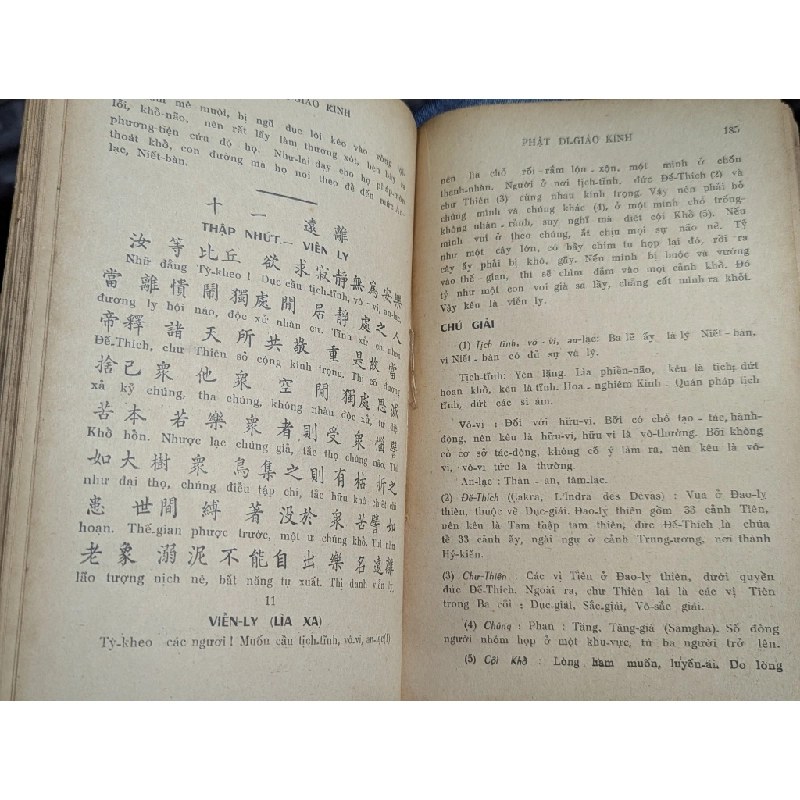 GIÁO KINH
mê muội, bị ngũ dục lôi kéo vào
lỗi, khổ-não, nên rất lấy làm thương xót, bèn bày ra
phương-tiện cứu độ họ. Như-lai dạy cho họ
thoát khổ, con đường mà họ noi theo để đến
lạc, Niết-bàn.
十 一 遠 離
THẬP NHỨT.— VIỄN LY
汝 等 比丘 欲 求 寂靜 無 爲 安樂
Nhữ đẳng Tỳ-kheo ! Dục cầu tịch-tĩnh, vô-vi, an-lạc,
當 離 憒 閙 獨 處 閒 居 靜 處 之 人
đương ly hội náo, độc xử nhàn cư. Tĩnh xử chi nhơn
帝 釋 諸 天 所 共 敬 重 是 故 當
Đế-Thích, chư Thiên sở cộng kính trọng. Thị cố đương
捨 己 衆 他 衆 空 閒 獨 處 思 滅
xả kỷ chúng, tha chúng, không nhàn độc xử, tư diệt
苦 本 若 樂 衆 者 則 受 衆 惱 譬
Khổ bổn. Nhược lạc chúng giả, tắc thọ chúng não. Thí
如 大 樹 衆 鳥 集 之 則 有 枯 折 之
như đại thọ, chúng điểu tập chi, tắc hữu khô chiết chi
患 世 間 縛 著 没 於 衆 苦 譬 如
hoạn. Thế-gian phược trước, một ư chúng khổ. Thí như
老 象 溺 泥 不 能 自 出 是 名 遠 離
lão tượng nịch nê, bất năng tự xuất. Thị danh viễn ly.
11
VIỄN-LY (LÌA XA)
Tỳ-kheo các ngươi ! Muốn cầu tịch-tĩnh, vô-vi, an-lạc(1)
PHẬT DI.GIÁO KINH 185
nên lìa chỗ rối-rắm lộn-xộn, một mình ở chốn
thanh-nhàn. Người ở nơi tịch-tĩnh, đức Đế-Thích (2) và
chư Thiên (3) cùng nhau kính trọng. Vậy nên phải bỏ
chúng mình và chúng khác (4), ở một mình chỗ trống-
không nhàn-rảnh, suy nghĩ mà diệt cội Khổ (5). Nếu
mình vui ở theo chúng, ắt chịu mọi sự não nề. Tỷ
như một cây lớn, có bầy chim tụ họp lại đó, rồi ra
cây ấy phải bị khô, gãy. Nếu mình bị buộc và vướng
vào thế-gian, thì sẽ chìm đắm vào một cảnh khổ. Đó
tỷ như một con voi già sa lầy, chẳng cất mình ra khỏi.
Vậy kêu là viễn ly.
CHÚ GIẢI
(1) Tịch tĩnh, vô-vi, an-lạc: Ba lẽ ấy là lý Niết-bàn,
vì Niết-bàn có đủ sự và lý.
Tịch-tĩnh: Yên lặng. Lìa phiền-não, kêu là tịch; dứt
hoạn khổ, kêu là tĩnh. Hoa-nghiêm Kinh. Quán pháp tịch
tĩnh, dứt các si ám.
Vô-vi : Đối với hữu-vi. Bởi có chỗ tạo-tác, hành-
động, nên kêu là hữu-vi, hữu vi là vô-thường. Bởi không
có cơ sở tác-động, không cố ý làm ra, nên kêu là vô-
vi, vô-vi tức là thường.
An-lạc : Thân-an, tâm-lạc.
(2) Đế-Thích (Çakra, L'Indra des Devas) : Vua ở Đạo-lỵ
thiên, thuộc về Dục-giái. Đao-lỵ thiên gồm 33 cảnh Tiên,
nên kêu là Tam thập tam thiên; đức Đế-Thích là chúa
tể 33 cảnh ấy, ngài ngự ở cảnh Trung-ương, nơi thành
Hỷ-kiến.
(3) Chư-Thiên Các vị Tiên ở Đao-lỵ thiên, dưới quyền
đức Đế-Thích. Ngoài ra, chư Thiên lại là các vị Tiên
trong Ba cõi : Dục-giái, Sắc-giái, Vô-sắc giái.
(4) Chúng : Phạn : Tăng, Tăng-già (Samgha). Số đông
người nhóm họp ở một khu-vực, từ ba người trở lên.
(5) Cội Khổ : Lòng ham muốn, luyến-ái. Do lòng